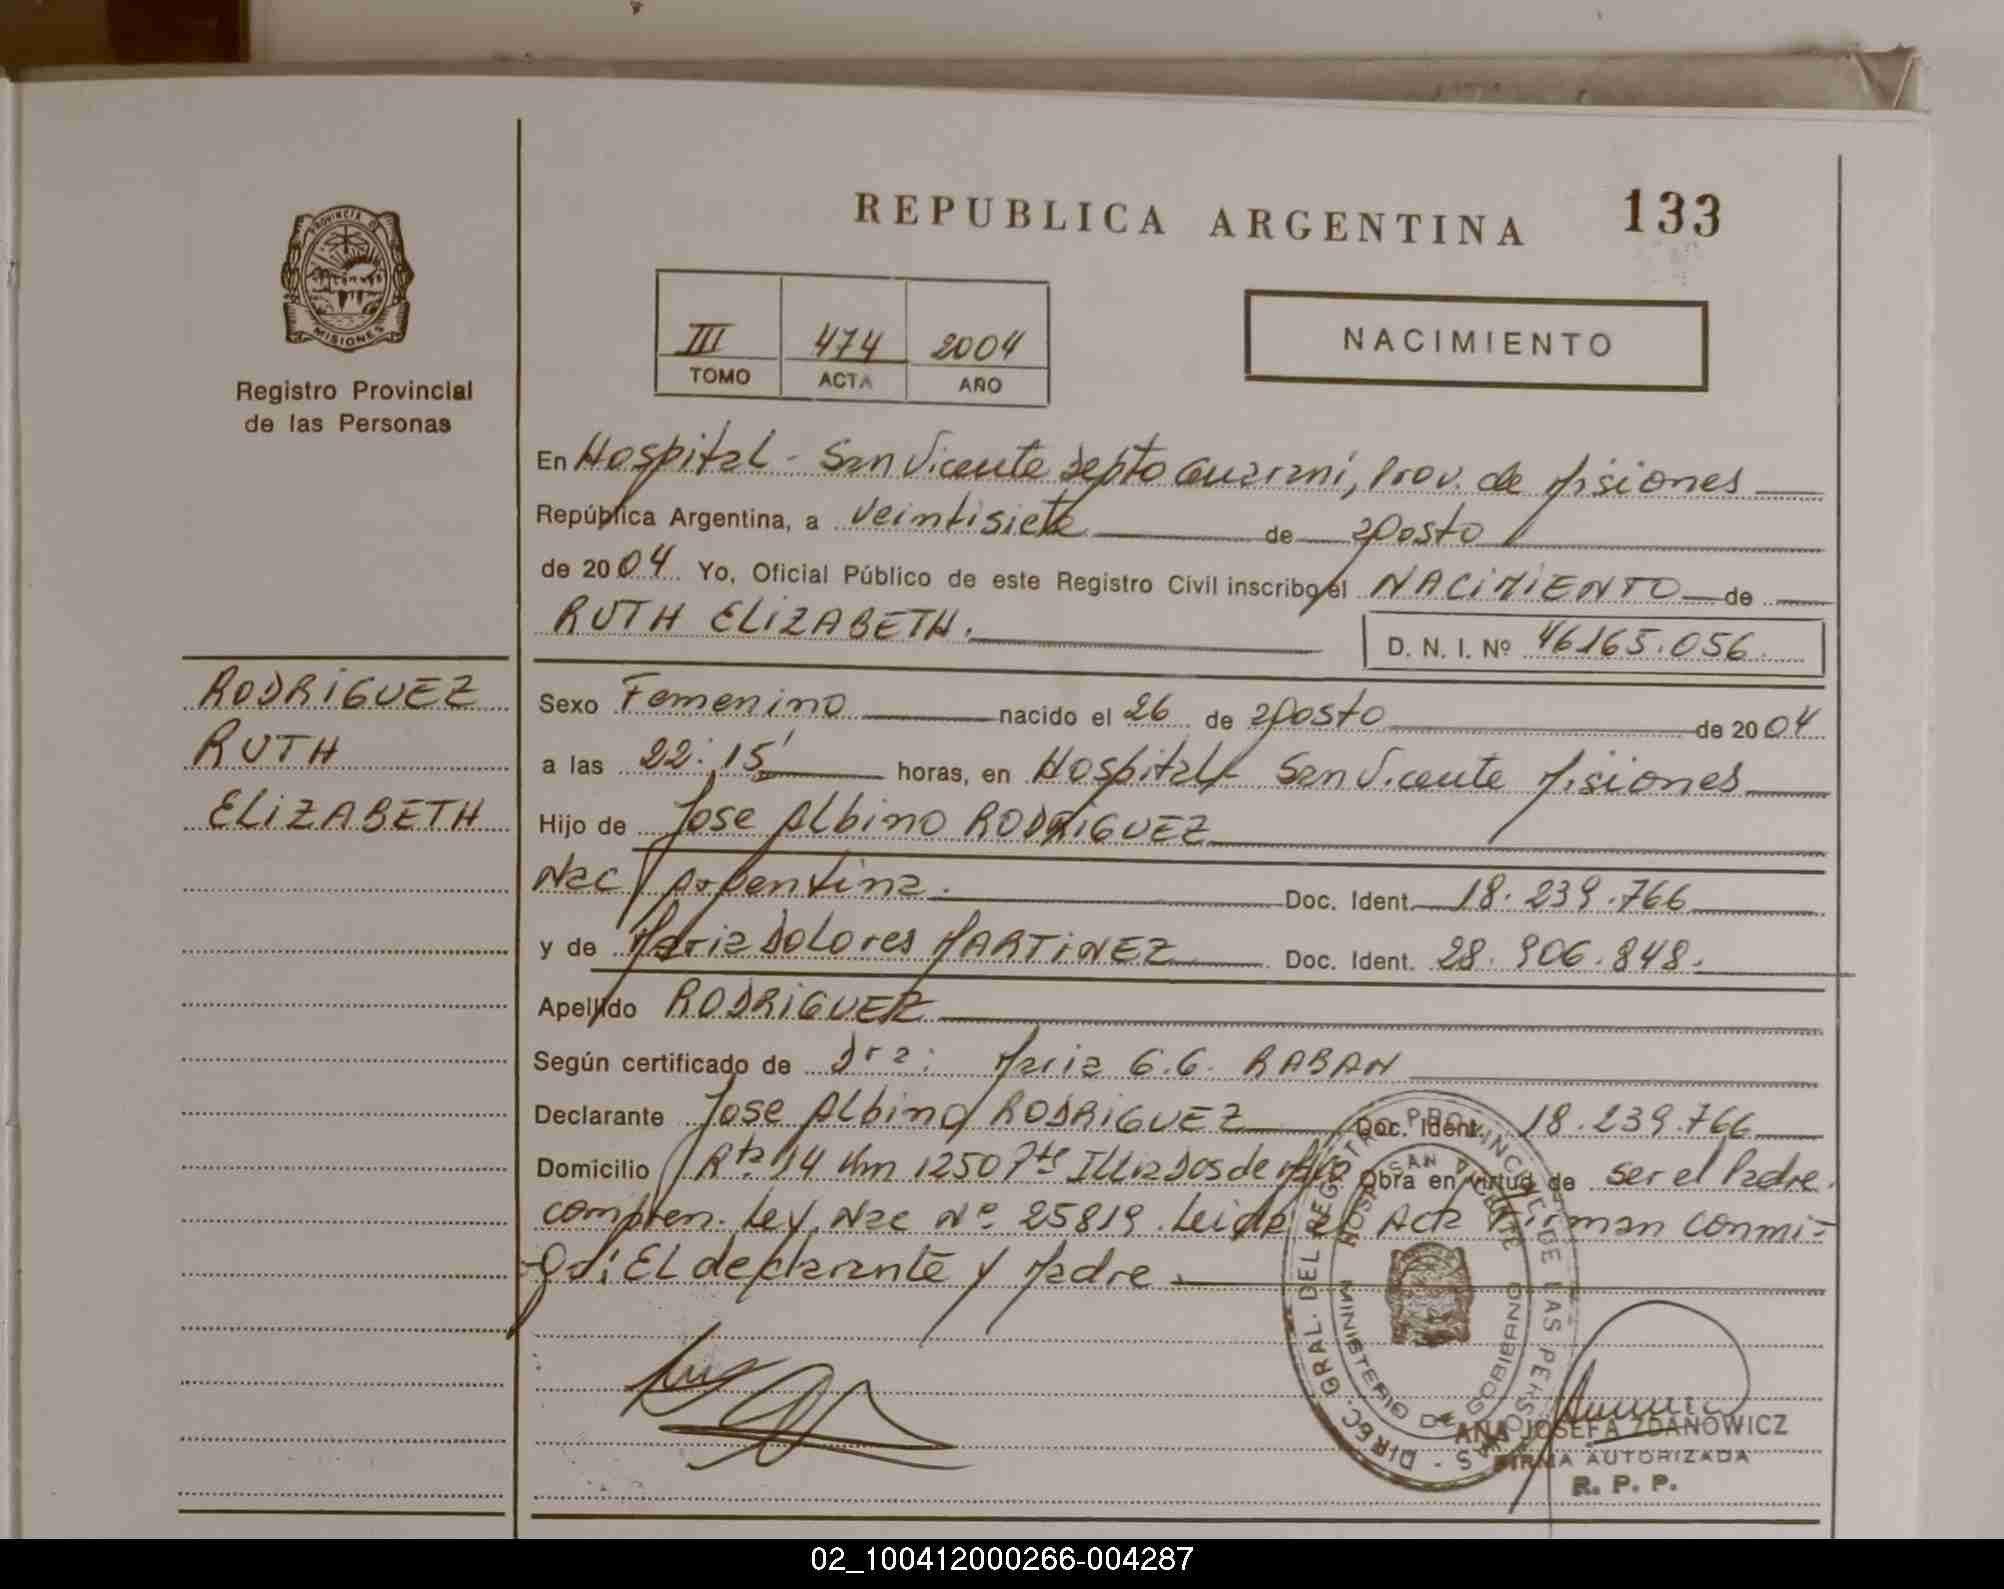 PROVINCIA
MISIONES
Registro Provincial
de las Personas
RODRIGUEZ
RUTH
ELIZABETH
REPUBLICA ARGENTINA 133
III 474 2004
TOMO ACTA AÑO
NACIMIENTO
En Hospital - San Vicente Depto Guaraní, Prov. de Misiones
República Argentina, a veintisiete de agosto
de 2004 Yo, Oficial Público de este Registro Civil inscribo el NACIMIENTO de
RUTH ELIZABETH. D. N. I. Nº 46165.056
Sexo Femenino nacido el 26 de agosto de 2004
a las 22:15' horas, en Hospital - San Vicente Misiones
Hijo de Jose Albino RODRIGUEZ
Nac Argentina. Doc. Ident. 18.239.766
y de Maria Dolores MARTINEZ Doc. Ident. 28.906.848.
Apellido RODRIGUEZ
Según certificado de Dra: Maria G.G. RABAN
Declarante Jose Albino RODRIGUEZ Doc. Ident. 18.239.766
Domicilio Rta 14 Km 1250 Obra en virtud de ser el Padre.
compren. Ley. Nac Nº 25819. Leida el Acta Firman conmi-
go: El declarante y Madre.
DIREC. GRAL. DEL REGISTRO PROVINCIAL DE LAS PERSONAS
HOSP. SAN VICENTE
MINISTERIO DE GOBIERNO
ANA JOSEFA ZDANOWICZ
FIRMA AUTORIZADA
R. P. P.
02_100412000266-004287